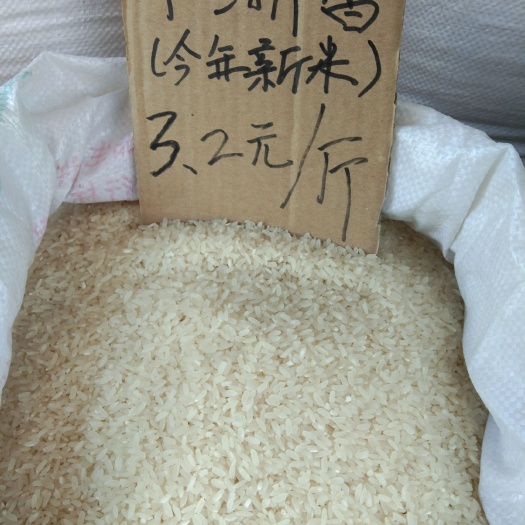 (今年新米)
3.2元/斤